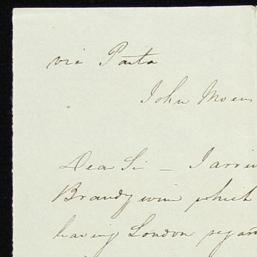 via Paita
John Moens
Dear Sir — I arri
Brandywine which
having London rega